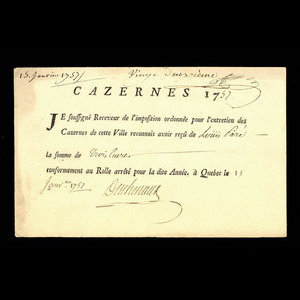 15. Janvier 1757
CAZERNES 1757
JE soussigné Receveur de l'imposition ordonnée pour l'entretien des
Cazernes de cette Ville reconnois avoir reçû de Louis Paré
la somme de trois livres
conformement au Rolle arrêté pour la dite Année. à Quebec le 15
Janv.er 1757